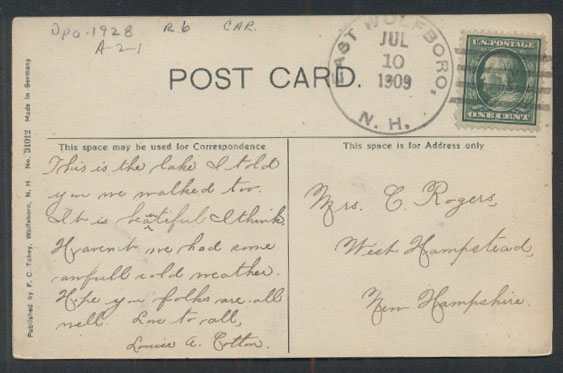 Dpo-1928 R6 CAR.
A-2-1
POST CARD.
EAST WOLFBORO, N. H.
JUL
10
1909
U.S. POSTAGE
ONE CENT
This space may be used for Correspondence
This space is for Address only
This is the lake I told
you we walked too.
It is beautiful I think.
Haven't we had some
awfull cold weather.
Hope you folks are all
well. Love to all,
Louise A. Cotton.
Mrs. C. Rogers,
West Hampstead,
New Hampshire.
Published by F. C. Tobey, Wolfeboro, N. H. No. 31012 Made in Germany